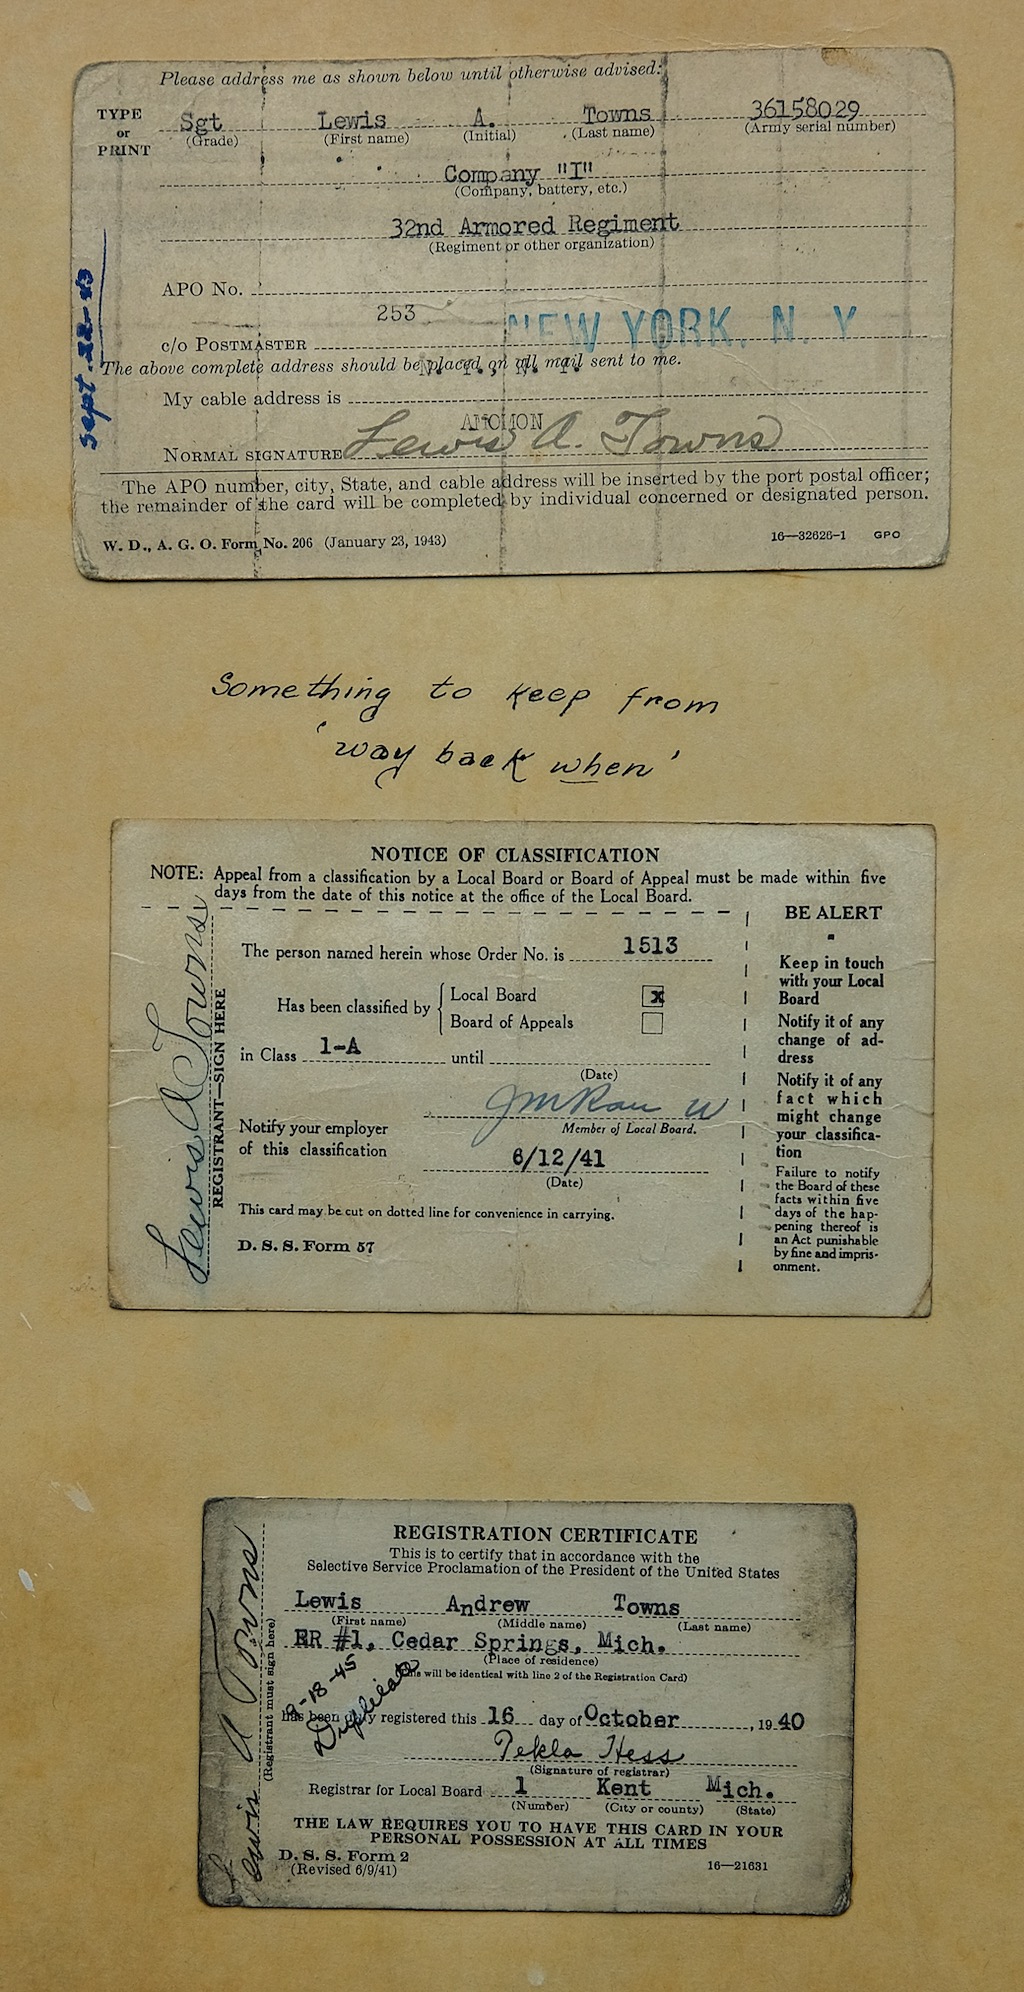 Please address me as shown below until otherwise advised:
TYPE
or
PRINT
Sgt Lewis A. Towns 36158029
(Grade) (First name) (Initial) (Last name) (Army serial number)
Company "I"
(Company, battery, etc.)
32nd Armored Regiment
(Regiment or other organization)
Sept-22-43
APO No.
253
NEW YORK, N. Y
c/o POSTMASTER
The above complete address should be placed on all mail sent to me.
My cable address is
AMCHON
NORMAL SIGNATURE Lewis A. Towns
The APO number, city, State, and cable address will be inserted by the port postal officer;
the remainder of the card will be completed by individual concerned or designated person.
W. D., A. G. O. Form No. 206 (January 23, 1943) 16—32626-1 GPO
Something to keep from
'way back when'
NOTICE OF CLASSIFICATION
NOTE: Appeal from a classification by a Local Board or Board of Appeal must be made within five
days from the date of this notice at the office of the Local Board.
Lewis A Towns
REGISTRANT—SIGN HERE
The person named herein whose Order No. is 1513
Has been classified by
Local Board x
Board of Appeals
in Class 1-A until
(Date)
Member of Local Board.
Notify your employer
of this classification
6/12/41
(Date)
This card may be cut on dotted line for convenience in carrying.
D. S. S. Form 57
BE ALERT
Keep in touch
with your Local
Board
Notify it of any
change of ad-
dress
Notify it of any
fact which
might change
your classifica-
tion
Failure to notify
the Board of these
facts within five
days of the hap-
pening thereof is
an Act punishable
by fine and impris-
onment.
Lewis A Towns
(Registrant must sign here)
REGISTRATION CERTIFICATE
This is to certify that in accordance with the
Selective Service Proclamation of the President of the United States
Lewis Andrew Towns
(First name) (Middle name) (Last name)
RR #1, Cedar Springs, Mich.
(Place of residence)
will be identical with line 2 of the Registration Card)
-18-45
Duplicate
has been duly registered this 16 day of October, 1940
Tekla Hess
(Signature of registrar)
Registrar for Local Board 1 Kent Mich.
(Number) (City or county) (State)
THE LAW REQUIRES YOU TO HAVE THIS CARD IN YOUR
PERSONAL POSSESSION AT ALL TIMES
D. S. S. Form 2
(Revised 6/9/41) 16—21631